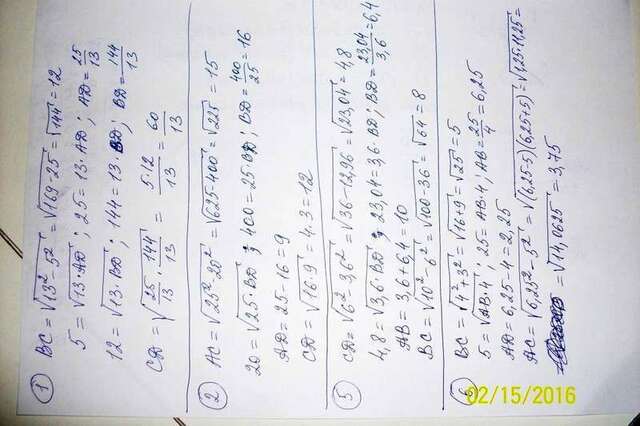 1 BC = √13² - 5² = √169 - 25 = √144 = 12
5 = √13 · AD ; 25 = 13 · AD ; AD = 25/13
12 = √13 · BD ; 144 = 13 · BD ; BD = 144/13
CD = √25/13 · 144/13 = 5·12/13 = 60/13
2 AC = √25² - 20² = √625 - 400 = √225 = 15
20 = √25 · BD ; 400 = 25 · BD ; BD = 400/25 = 16
AD = 25 - 16 = 9
CD = √16 · 9 = 4 · 3 = 12
5 CD = √6² - 3,6² = √36 - 12,96 = √23,04 = 4,8
4,8 = √3,6 · BD ; 23,04 = 3,6 · BD ; BD = 23,04/3,6 = 6,4
AB = 3,6 + 6,4 = 10
BC = √10² - 6² = √100 - 36 = √64 = 8
6 BC = √4² + 3² = √16 + 9 = √25 = 5
5 = √AB · 4 ; 25 = AB · 4 ; AB = 25/4 = 6,25
AD = 6,25 - 4 = 2,25
AC = √6,25² - 5² = √(6,25 - 5)(6,25 + 5) = √1,25 · 11,25 =
= √14,0625 = 3,75
02/15/2016